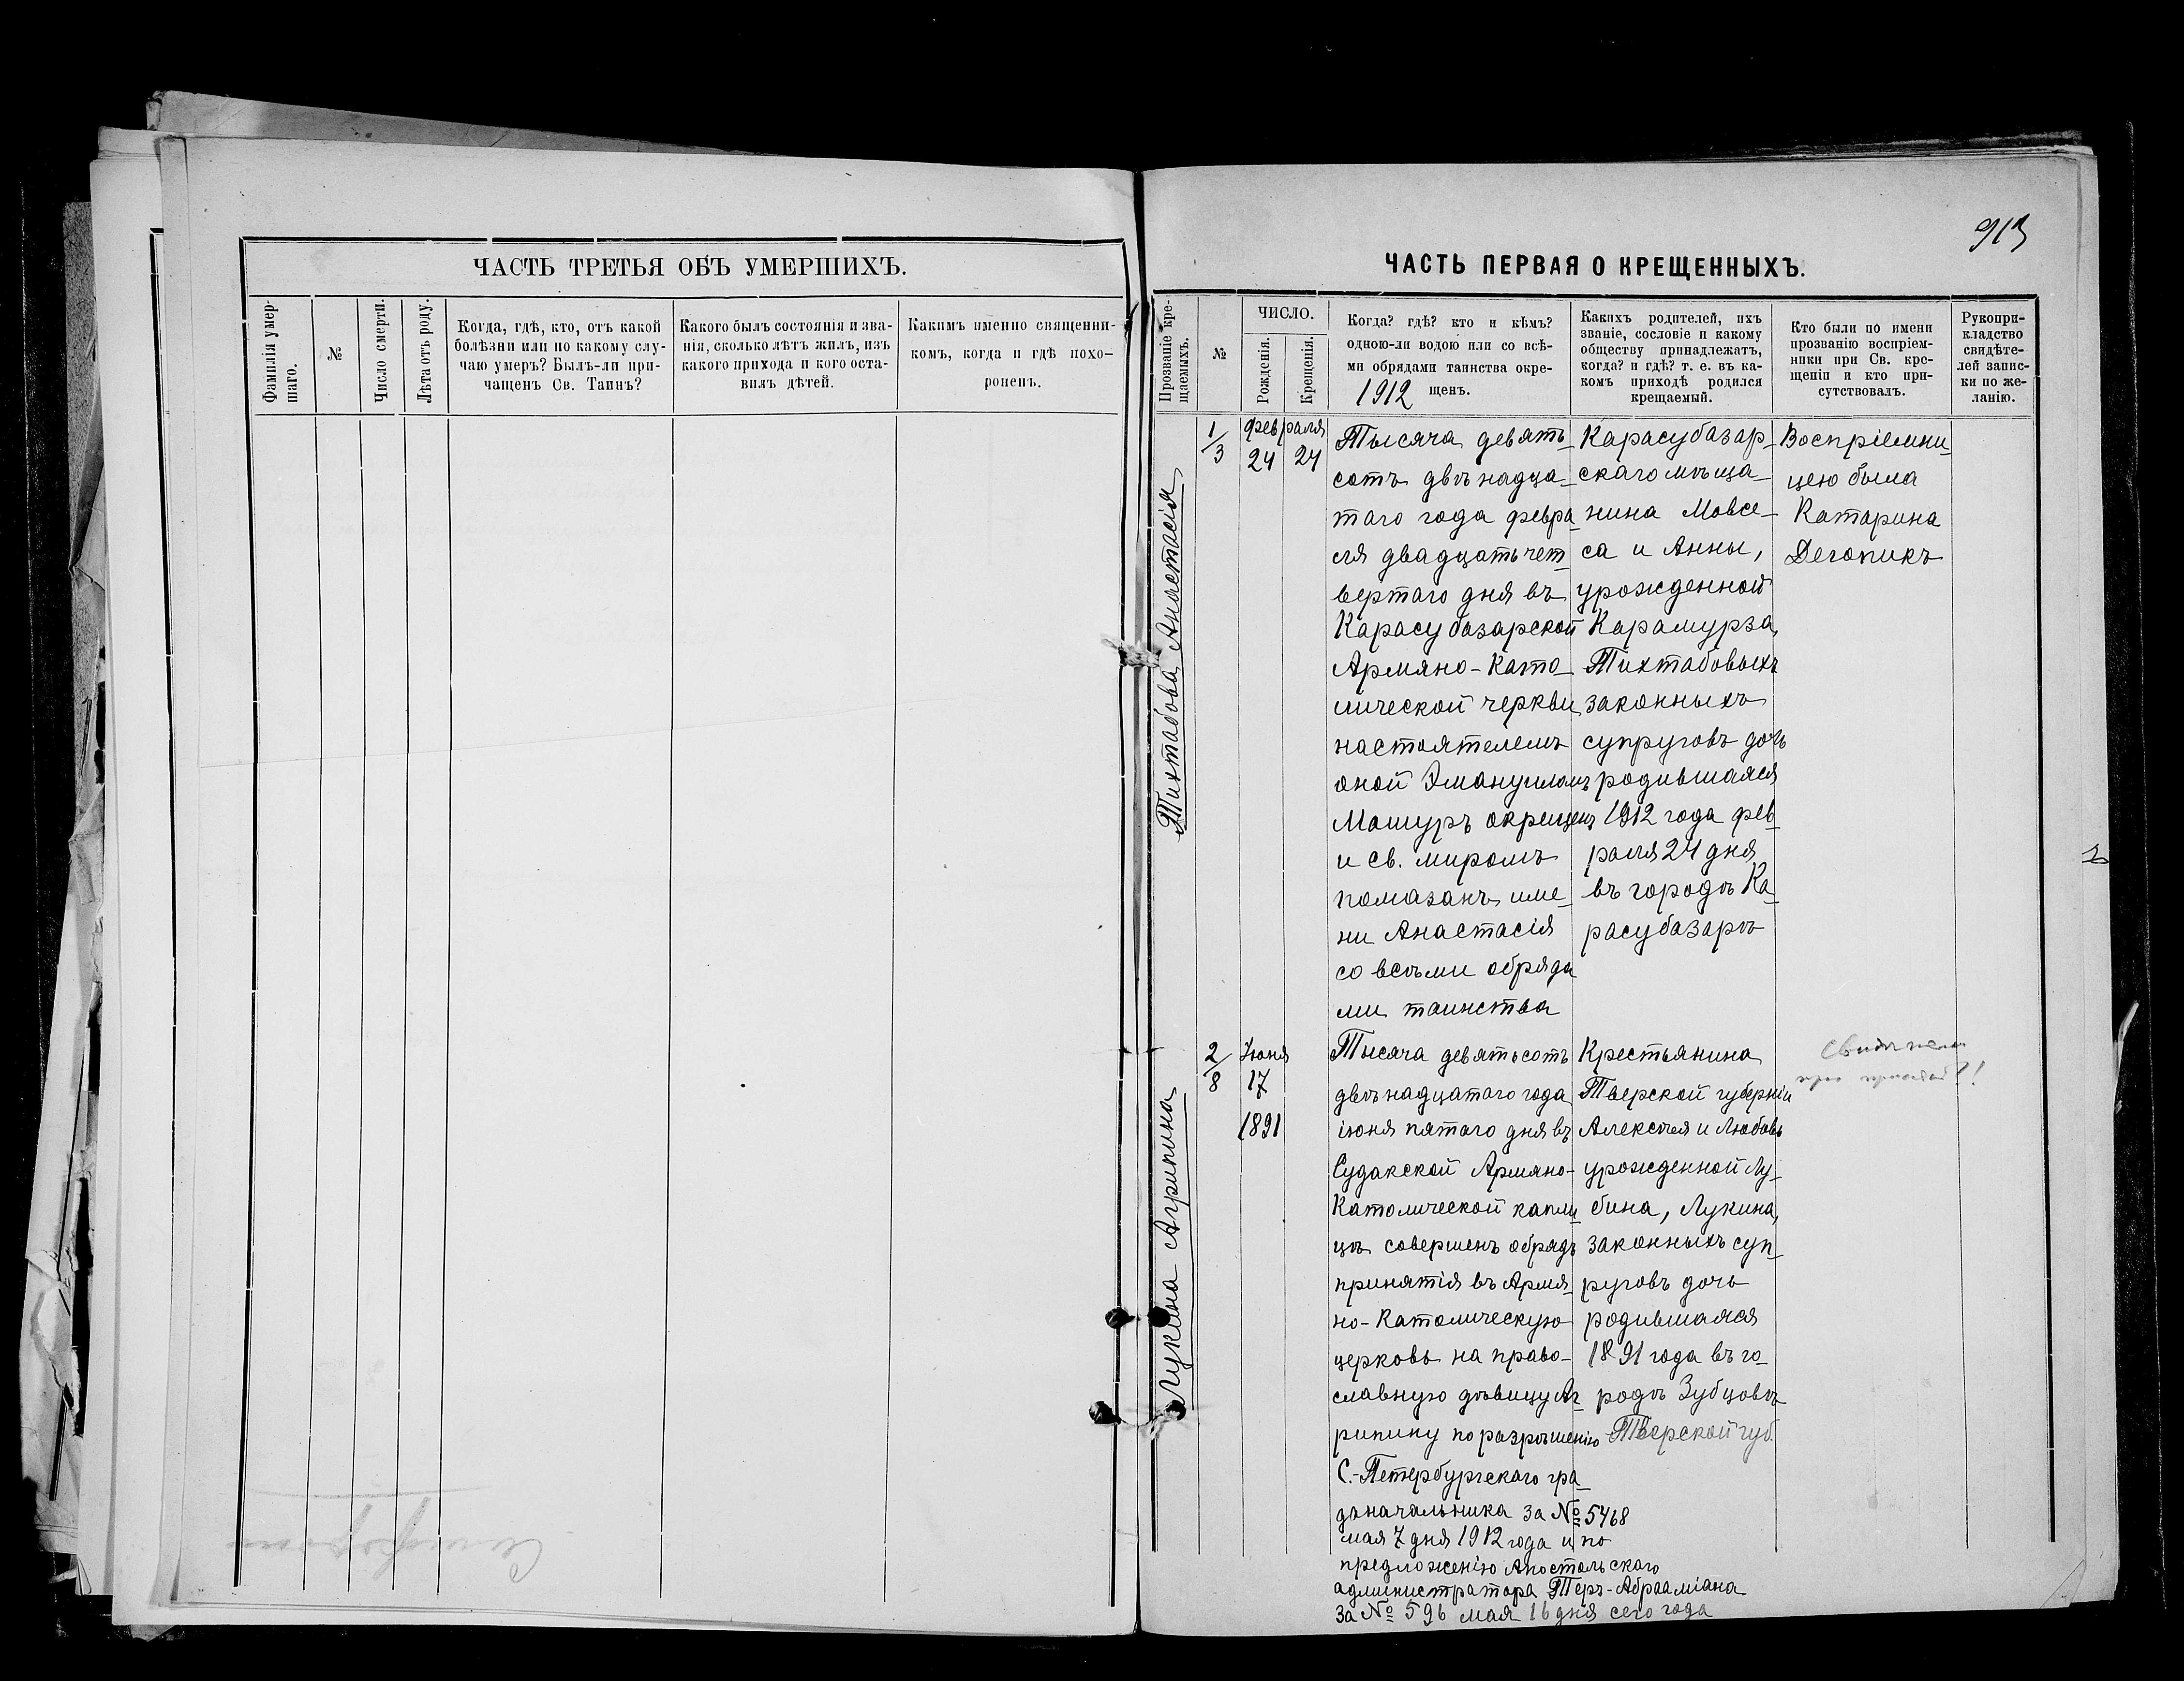 ЧАСТЬ ТРЕТЬЯ ОБЪ УМЕРШИХЪ.
Фамилія умер-
шаго.
№
Число смерти.
Лѣта отъ роду.
Когда, гдѣ, кто, отъ какой
болѣзни или по какому слу-
чаю умеръ? Былъ-ли при-
чащенъ Св. Таинъ?
Какого былъ состоянія и зва-
нія, сколько лѣтъ жилъ, изъ
какого прихода и кого оста-
вилъ дѣтей.
Какимъ именно священни-
комъ, когда и гдѣ похо-
роненъ.
913
ЧАСТЬ ПЕРВАЯ О КРЕЩЕННЫХЪ.
Прозваніе кре-
щаемыхъ.
№
ЧИСЛО.
Рожденія.
Крещенія.
Когда? гдѣ? кто и кѣмъ?
одною-ли водою или со всѣ-
ми обрядами таинства окре-
1912 щенъ.
Какихъ родителей, ихъ
званіе, сословіе и какому
обществу принадлежатъ,
когда? и гдѣ? т. е. въ ка-
комъ приходѣ родился
крещаемый.
Кто были по имени
прозванію воспріем-
ники при Св. кре-
щеніи и кто при-
сутствовалъ.
Рукопри-
кладство
свидѣте-
лей запис-
ки по же-
ланію.
Тихтабова Анастасія
1/3
Февраля
24 24
Тысяча девять
сотъ двѣнадца-
таго года февра
ля двадцать чет
вертаго дня въ
Карасубазарской
Армяно-Като-
лической черкви
настоятелемъ
оной Эмануиломъ
Мошуръ окрещенъ
и св. миромъ
помазанъ име-
ни Анастасія
со всѣми обряда
ми таинства
Карасубазар-
скаго мѣща-
нина Мовсе-
са и Анны,
урожденной
Карамурза,
Тихтабовыхъ
законныхъ
супруговъ дочь
родившаяся
1912 года фев-
раля 24 дня
въ городѣ Ка-
расубазарѣ
Воспріемни-
цею была
Катарина
Дегопикъ
Лукина Агрипина
2/8
Июня
17
1891
Тысяча девятьсотъ
двѣнадцатаго года
іюня пятаго дня въ
Судакской Армяно-
Католической капли
цѣ совершенъ обрядъ
принятія въ Армя-
но-Католическую
церковь на право-
славную дѣвицу Аг-
рипину по разрѣшенію
С.-Петербургскаго гра-
доначальника за № 5468
мая 7 дня 1912 года и по
предложенію Апостольскаго
администратора Теръ-Абрааміана
за № 596 мая 16 дня сего года
Крестьянина
Тверской губерніи
Алексѣя и Любовь
урожденной Лу-
бина, Лукина,
законныхъ суп-
руговъ дочь
родившаяся
1891 года въ го-
родѣ Зубцовѣ
Тверской губ.